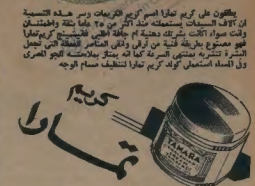 يطلقون على كريم تمارا اسم كريم الكريمات وسر هذه التسمية
ان آلاف السيدات يستعملنه منذ اكثر من ٢٥ عاما بثقة واطمئنان
وانت سواء اكانت بشرتك دهنية ام جافة اطلبى
فهو مصنوع بطريقة فنية من أرقى وأنقى العناصر الفعالة التى تجعل
البشرة تتشربه بمنتهى السرعة كما انه يمتاز بملاءمته للجو المصرى
وفى المساء استعملى كولد كريم تمارا لتنظيف مسام الوجه
كريم
تمارا
TAMARA